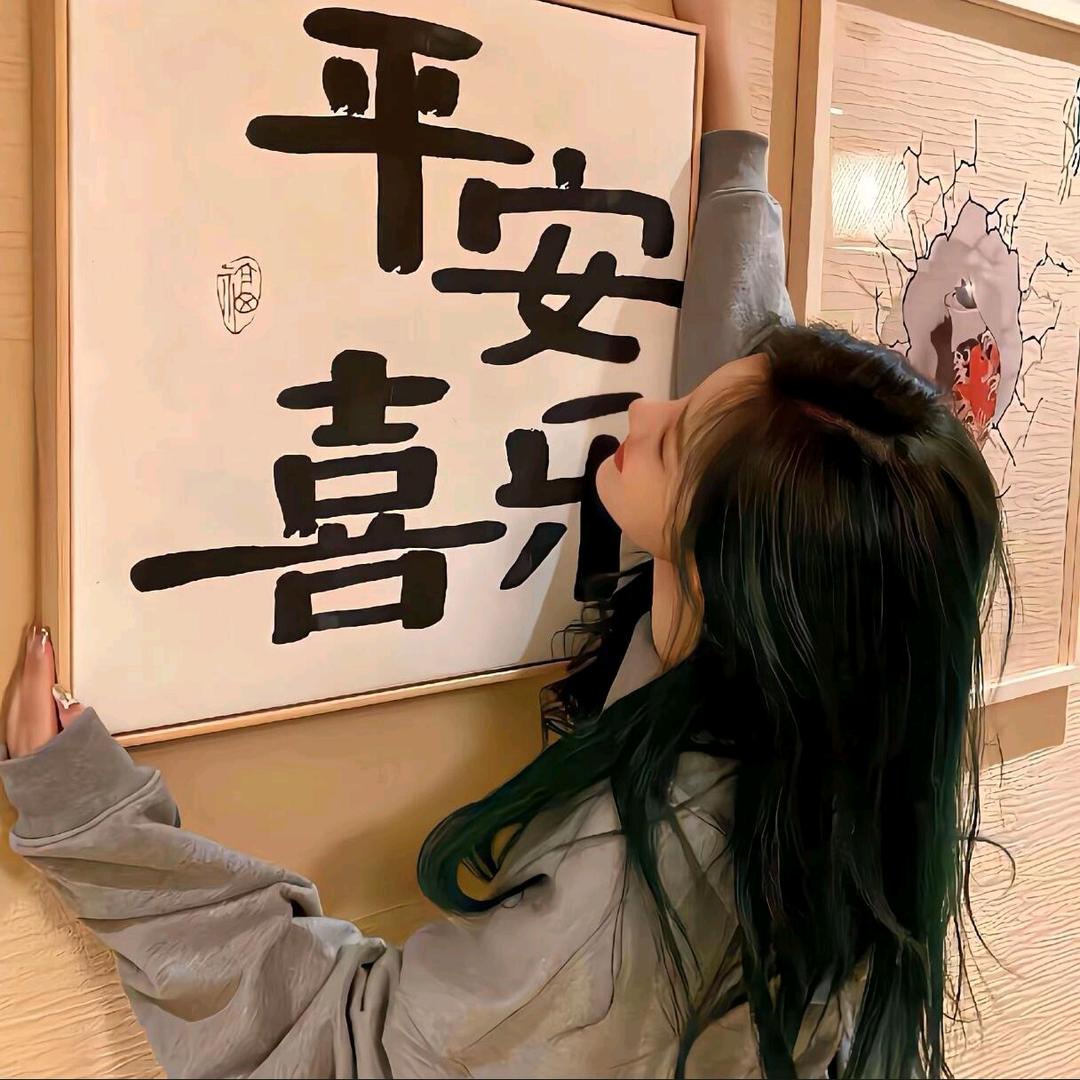 平安
喜乐
福